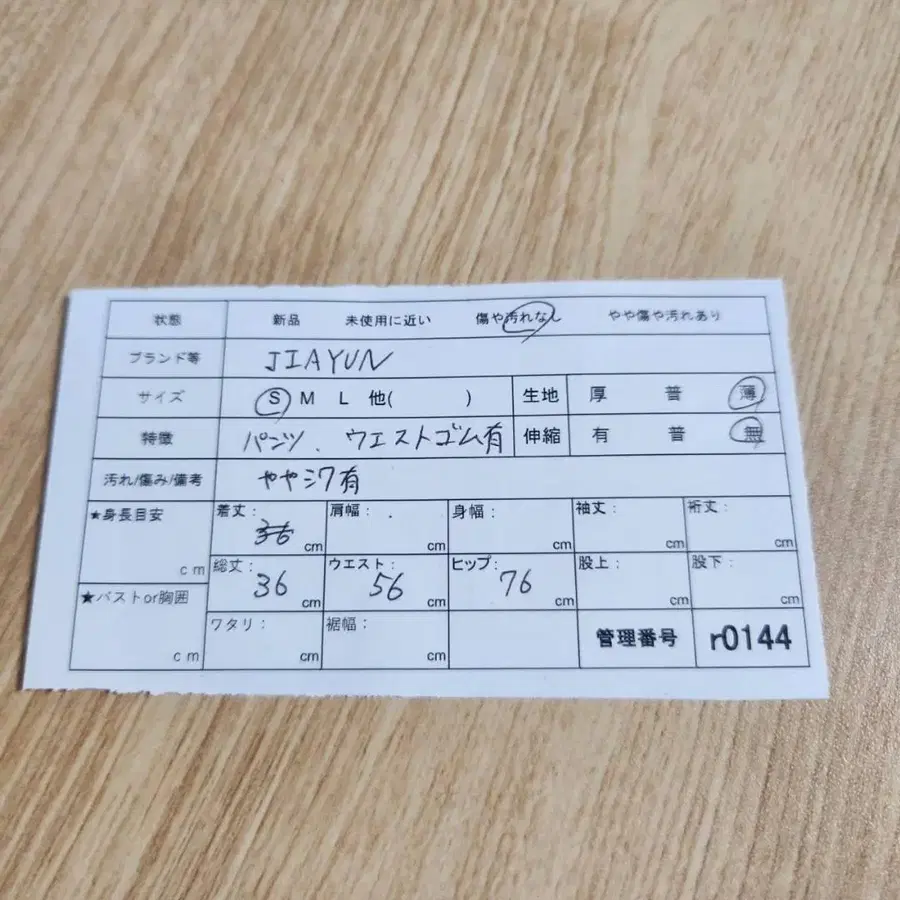 状態 新品 未使用に近い 傷や汚れなし やや傷や汚れあり
ブランド等 JIAYUN
サイズ S M L 他( ) 生地 厚 普 薄
特徴 パンツ、ウエストゴム有 伸縮 有 普 無
汚れ/傷み/備考 ややシワ有
★身長目安 cm 着丈: 36 cm 肩幅: . cm 身幅: cm 袖丈: cm 裄丈: cm
総丈: 36 cm ウエスト: 56 cm ヒップ: 76 cm 股上: cm 股下: cm
★バストor胸囲 cm ワタリ: cm 裾幅: cm 管理番号 r0144